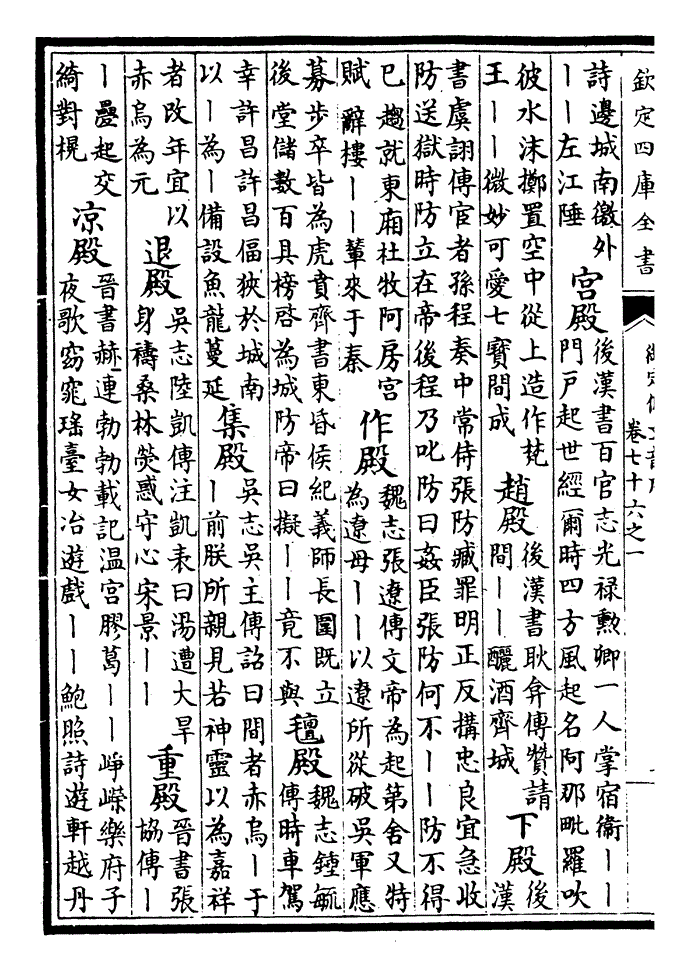 欽定四庫全書
卷七十六之一
詩邊城南徼外
丨丨左江陲
宮殿
後漢書百官志光禄勲卿一人掌宿衛丨丨
門戶起世經爾時四方風起名阿那毗羅吹
彼水沫擲置空中從上造作梵
王丨丨微妙可愛七寶間成
趙殿
後漢書耿弇傳贊請
間丨丨釃酒齊城
下殿
後
漢
書虞詡傳宦者孫程奏中常侍張防贓罪明正反搆忠良宜急收
防送獄時防立在帝後程乃叱防曰姦臣張防何不丨丨防不得
已趨就東廂杜牧阿房宮
賦辭樓丨丨輦來于秦
作殿
魏志張遼傳文帝為起第舍又特
為遼母丨丨以遼所從破吳軍應
募步卒皆為虎賁齊書東昏侯紀義師長圍既立
後堂儲數百具榜啓為城防帝曰擬丨丨竟不與
氊殿
魏志鍾毓
傳時車駕
幸許昌許昌偪狹於城南
以丨為丨備設魚龍蔓延
集殿
吳志吳主傳詔曰間者赤烏丨于
丨前朕所親見若神靈以為嘉祥
者改年宜以
赤烏為元
退殿
吳志陸凱傳注凱表曰湯遭大旱
身禱桑林熒惑守心宋景丨丨
重殿
晉書張
協傳丨
丨疊起交
綺對榥
凉殿
晉書赫連勃勃載記温宫膠葛丨丨崢嶸樂府子
夜歌窈窕瑤臺女冶遊戲丨丨鮑照詩遊軒越丹